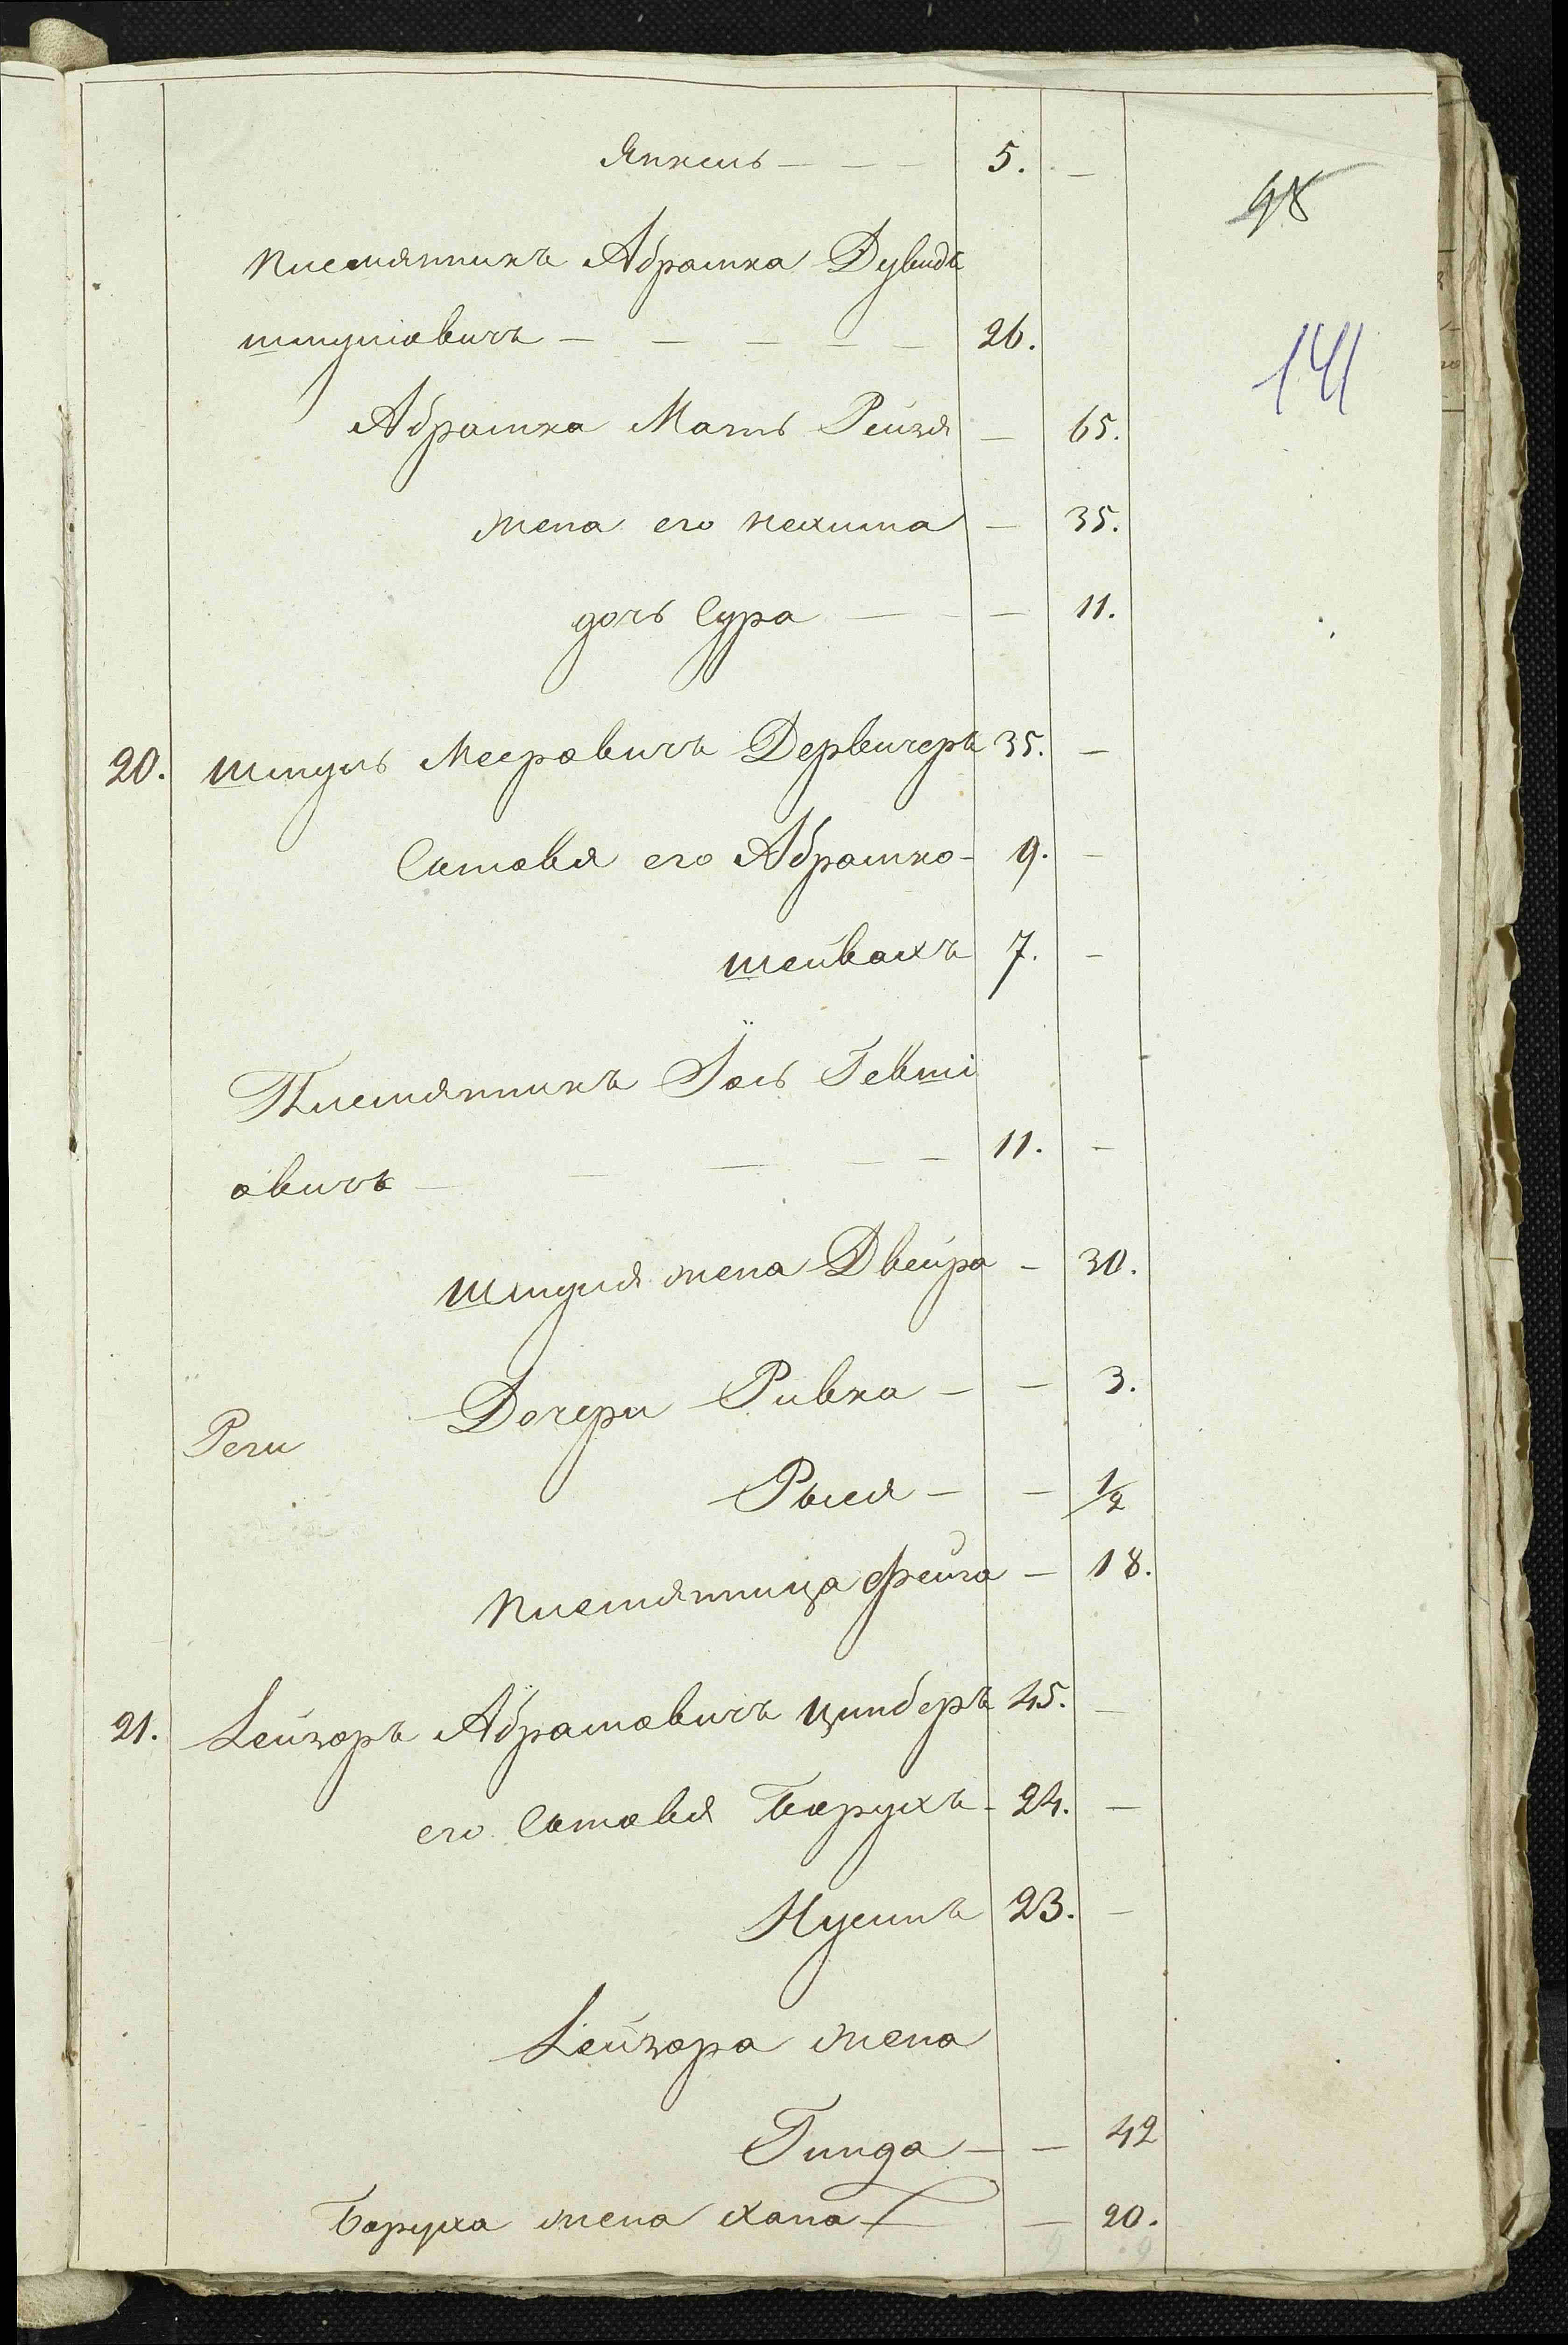 Янкель — — — 5. —
98
племянникъ Абрамка Дувидъ
шмулiовичъ — — — — — 26.
141
Абрамка Мать Рейзя — 65.
жена его нехима — 35.
дочь Сура — — 11.
20. Шмуль Мееровичъ Дервичеръ 35. —
Сыновья его Абрамко - 9. —
шейвахъ 7. —
Племянникъ Іоль Гевші
овичъ — — — — — 11. —
Шмуля жена Двейра — 30.
Дочери Ривка — — 3.
Реги
Рыся — — 1/2
племянница фейга — 18.
21. Лейзоръ Абрамовичъ цимберъ 45. —
его Сыновья Борухъ - 24. —
Нусинъ 23. —
Лейзора жена
Гинда — — 42
Боруха жена хана — — 20.